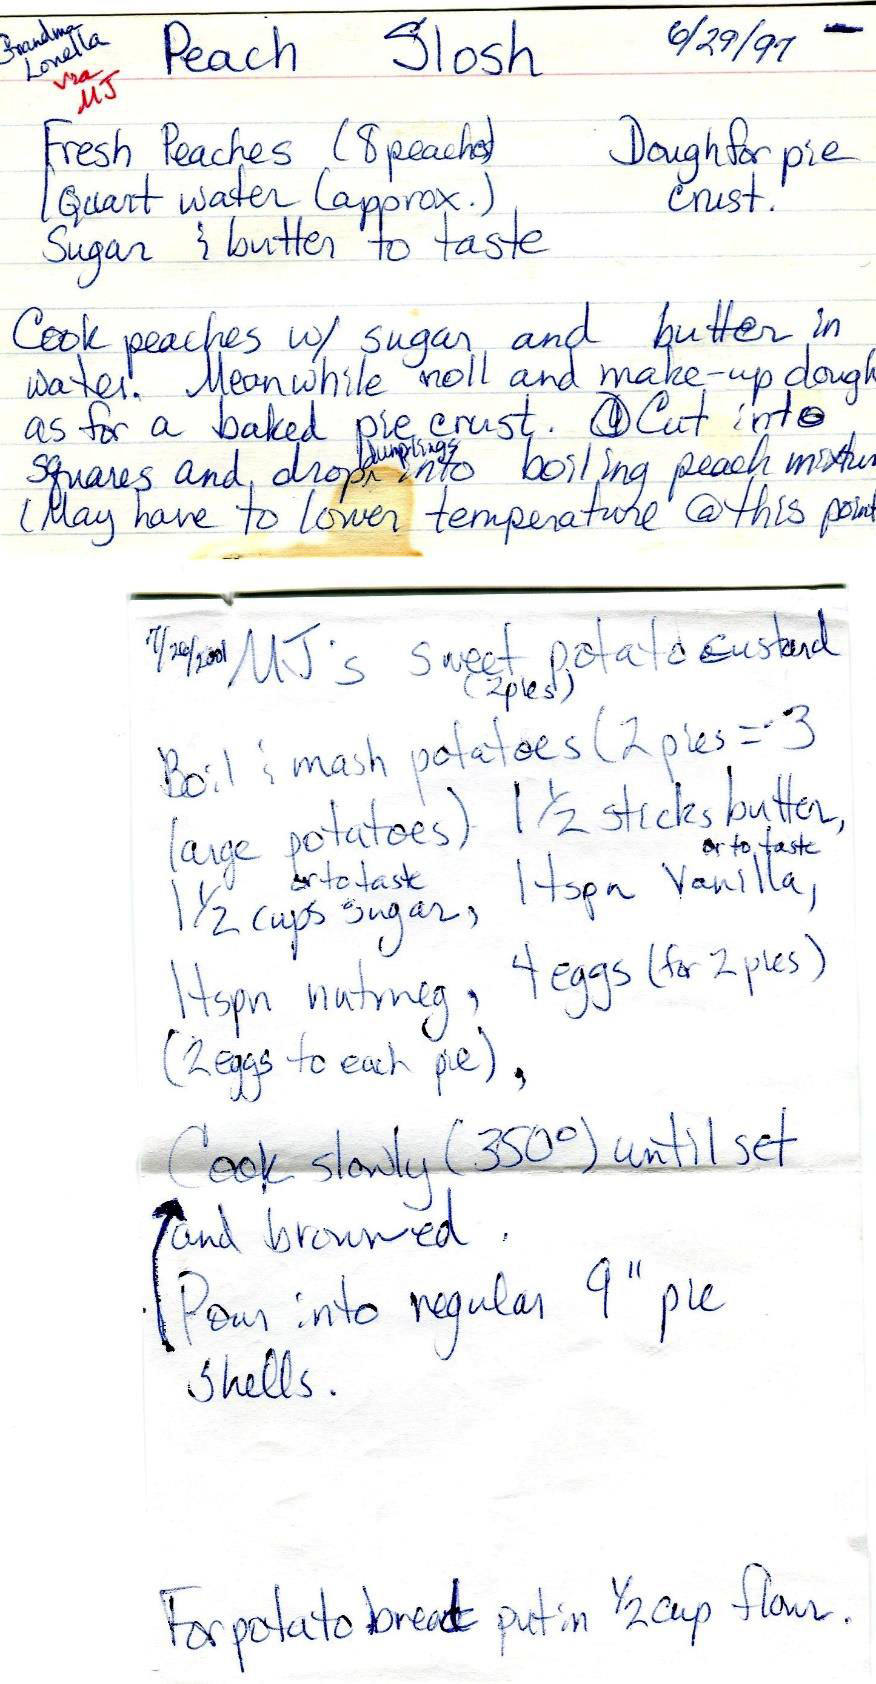 Grandma
Lonella
via
MJ
Peach Slosh
6/29/97
Fresh Peaches (8 peaches)
Dough for pie
crust.
1 Quart water (approx.)
Sugar & butter to taste
Cook peaches w/ sugar and butter in
water. Meanwhile roll and make-up dough
as for a baked pie crust. Cut into
squares and drop dumplings into boiling peach mixture
(May have to lower temperature @ this point
7/26/2001 MJ's sweet potato custard
(2 pies)
Boil & mash potatoes (2 pies = 3
large potatoes) 1 1/2 sticks butter,
or to taste
or to taste
1 1/2 cups sugar, 1 tspn Vanilla,
1 tspn nutmeg, 4 eggs (for 2 pies)
(2 eggs to each pie),
Cook slowly (350°) until set
and browned.
Pour into regular 9" pie
shells.
For potato bread put in 1/2 cup flour.